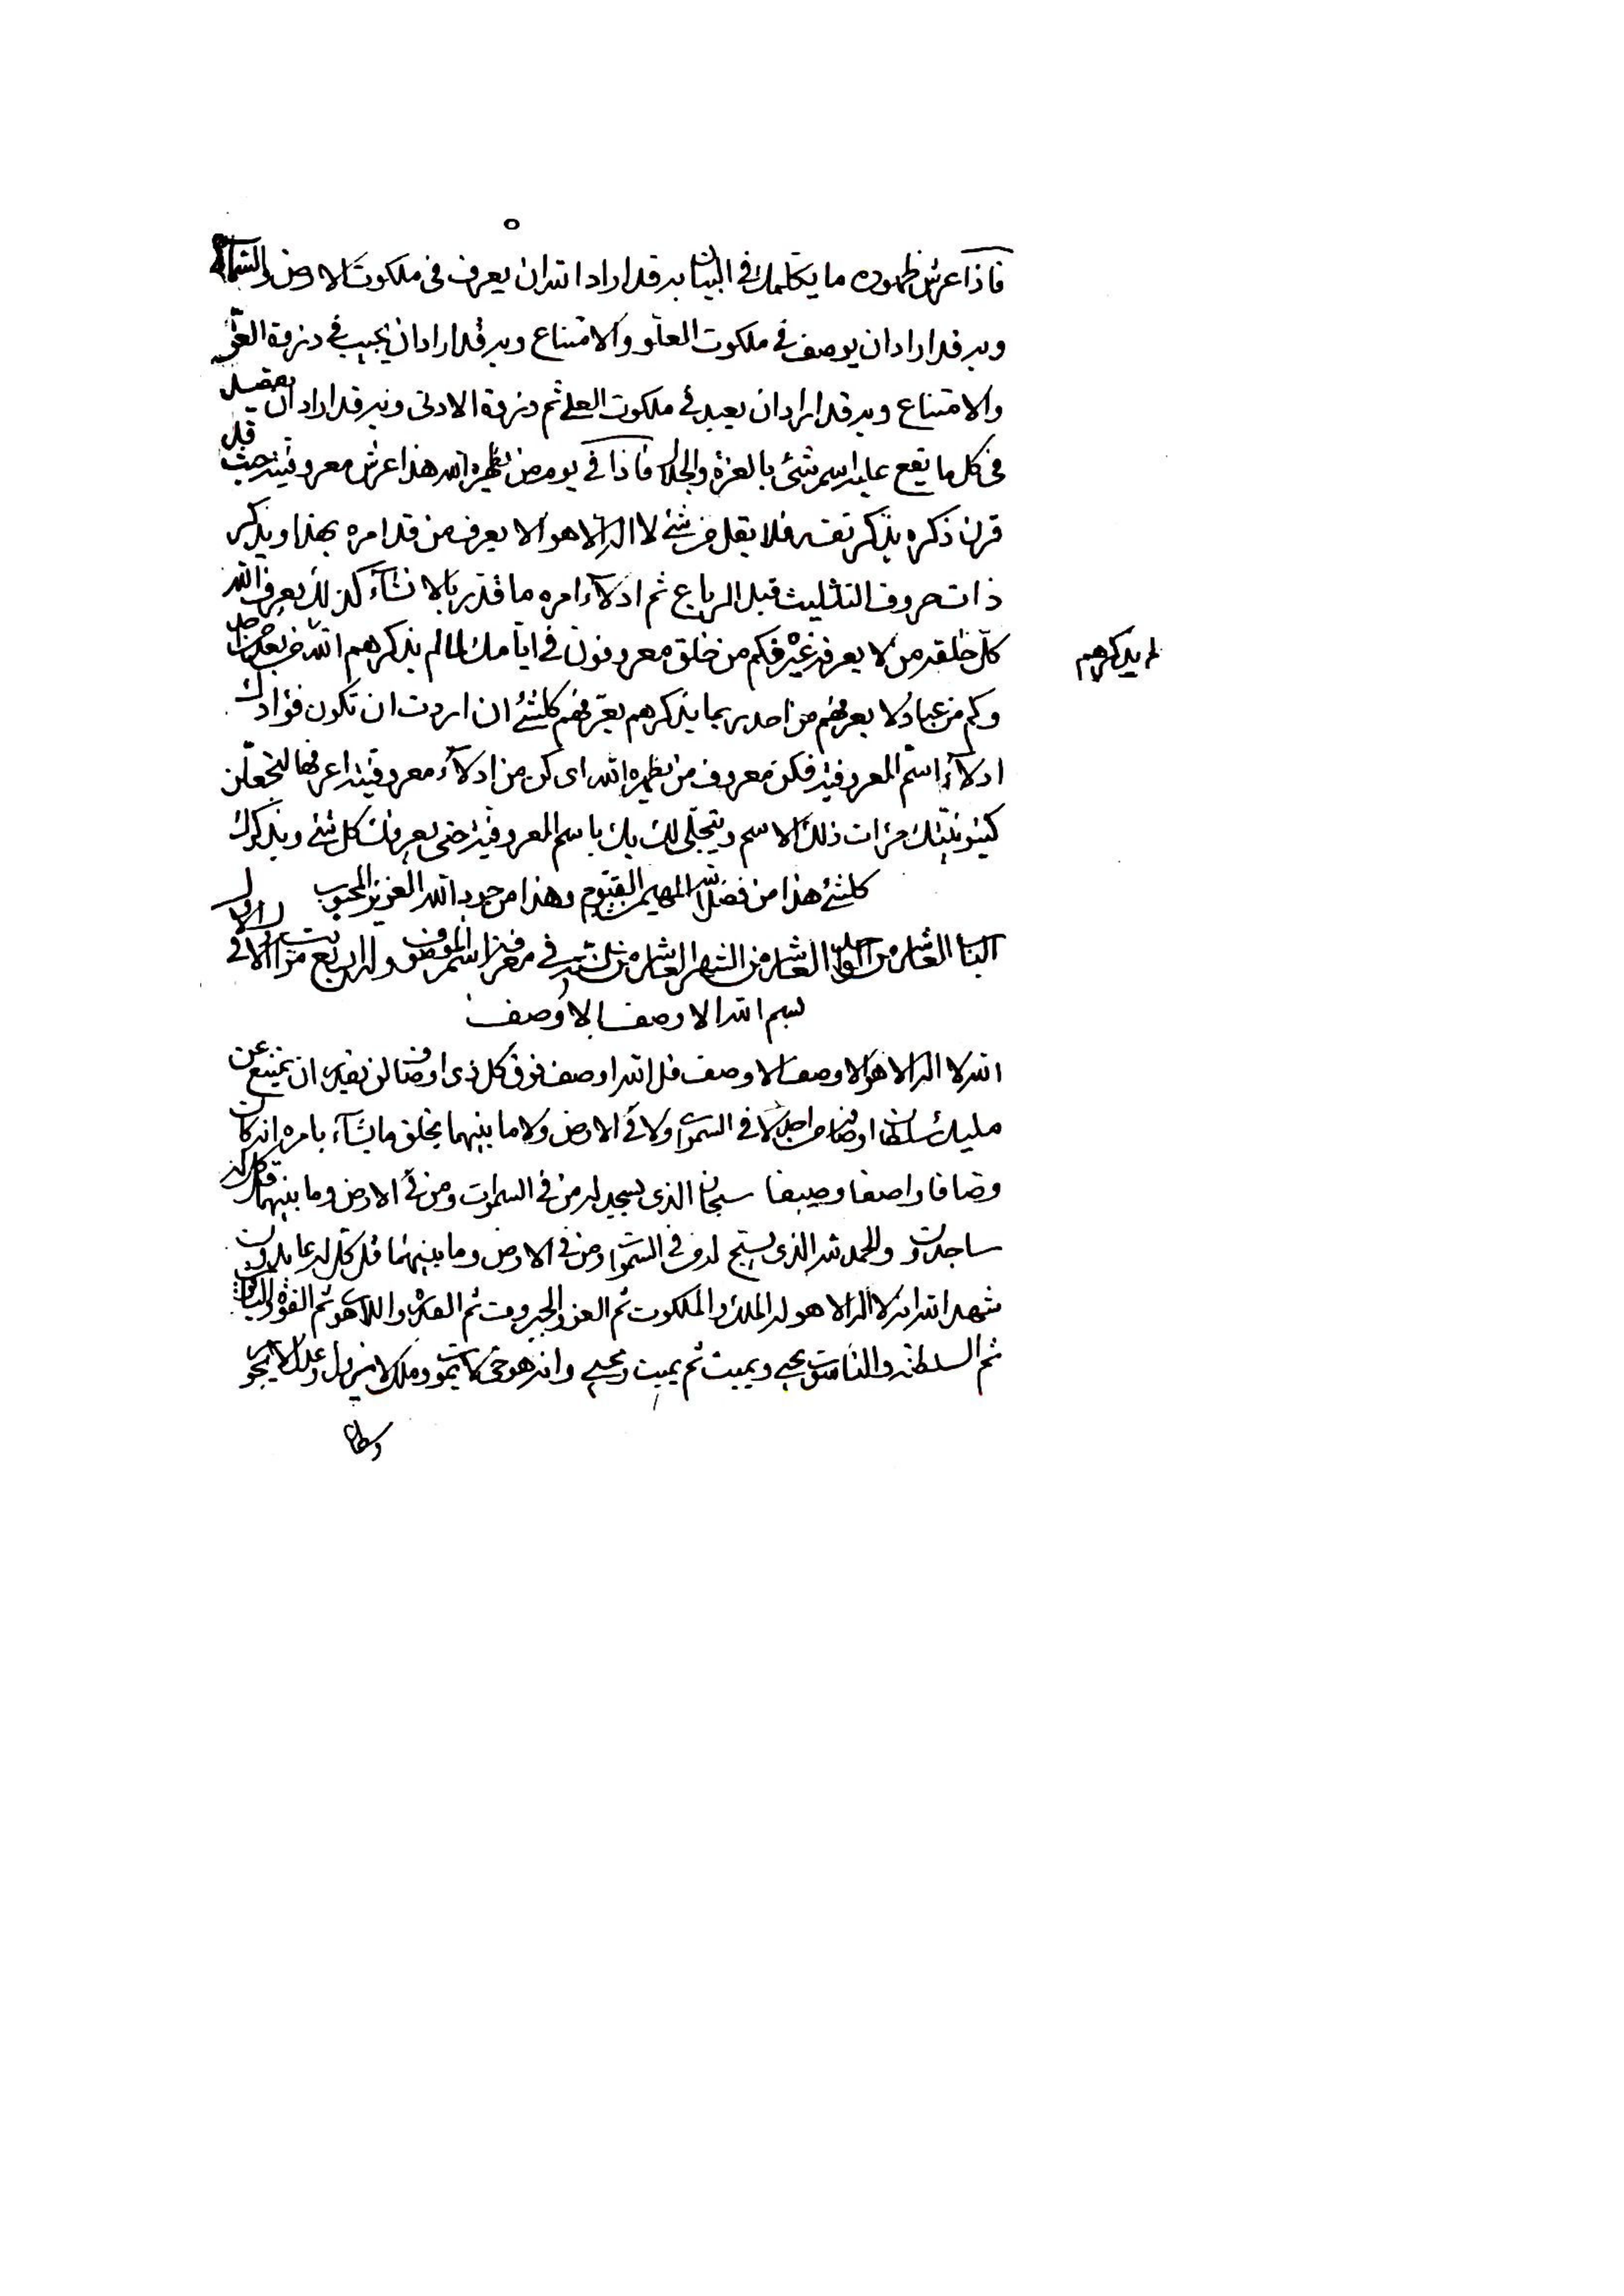 فاذا عرش ظهوره ما يتكلمك في البيان به قد اراد الله ان يعرف في ملكوت الارض والسمآء
وبه قد اراد ان يوصف في ملكوت العلو والامتناع وبه قد اراد ان يجيب في ذروة العز
والامتناع وبه قد اراد ان يعبد في ملكوت العلى ثم ذروة الادنى وبه قد اراد ان يقصد
في كل ما يقع عليه اسم شئ بالعزة والجلال فاذا في يوم من يظهره الله هذا عرش معروفيته حيث قد
قرن ذكره بذكر نفسه فلا يقل من شئ لا اله الا هو الا يعرف من قد امره بهذا ويذكر
ذات حروف التثليث قبل الرباع ثم ادلآء امره ما قدر بالانشآء كذلك يعرف الله
كل خلقه من لا يعرفه غيره فكم من خلق معروفون في ايامك لما لم يذكرهم الله من بعد
لم يذكرهم
وكم من عباد لا يعرفهم من احد بما يذكرهم يعرفهم كلشئ ان اردت ان تكون فؤادك
ادلآء اسم المعروفية فكن معروف من يظهره الله اى كن من ادلآء معروفيته اعرفها لتجعلن
كينونيتك مرات ذلك الاسم ويتجلى لك بك باسم المعروفية حتى يعرفك كل شئ ويذكرك
كلشئ هذا من فضل الله المهيمن القيوم وهذا من جود الله العزيز المحبوب
الباب العاشر من الواحد العاشر من الشهر العاشر من السنة في معرفة اسم الموصف وله اربع مراتب الاول في الاول
بسم الله الاوصف الاوصف
الله لا اله الا هو الاوصف الاوصف قل الله اوصف فوق كل ذى اوصاف لن يقدر ان يمتنع عن
مليك سلطان اوصافه من احد لا في السموات ولا في الارض ولا ما بينهما يخلق ما يشآء بامره انه كان
وصافا واصفا وصيفا سبحان الذى يسجد له من في السموات ومن في الارض وما بينهما قل كل له
ساجدون والحمد لله الذى يسبح له من في السموات ومن في الارض وما بينهما قل كل له عابدون
شهد الله انه لا اله الا هو له الملك والملكوت ثم العز والجبروت ثم القدرة واللاهوت ثم القوة والياقوت
ثم السلطنة والناسوت يحيى ويميت ثم يميت ويحيى وانه هو حى لا يموت وملك لا يزول وعدل لا يجور
وسلطان